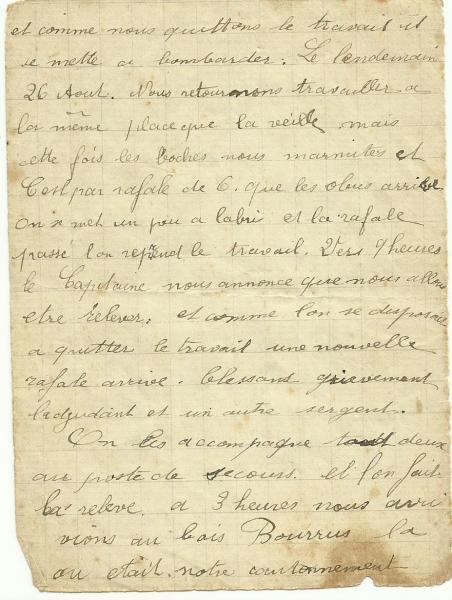 et comme nous quittons le travail il
se mette a bombarder. Le lendemain
26 Aout. Nous retournons travailler a
la même place que la veille mais
cette fois les boches nous marmites et
C'est par rafale de 6. que les obus arrive
On se met un peu a labri et la rafale
passé l'on reprend le travail. Vers 9 heures
le Capitaine nous annonce que nous allons
etre relever, et comme l'on se disposait
a quitter le travail une nouvelle
rafale arrive. blessant grievement
ladjudant et un autre sergent.
On les accompagne tout deux
au poste de secours. et l'on fait
la releve. a 3 heures nous arri
vions au bois Bourrus la
ou etait notre cantonnement